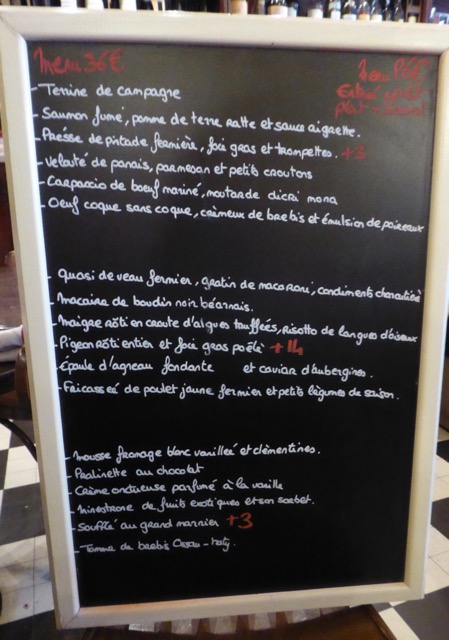 Menu 36€
Menu
Entrée
plat - dessert
- Terrine de campagne
- Saumon fumé, pomme de terre ratte et sauce aigrette.
- Pressée de pintade fermière, foie gras et trompettes. +3
- Velouté de panais, parmesan et petits croutons
- Carpaccio de boeuf mariné, moutarde dicri mona
- Oeuf coque sans coque, crèmeux de brebis et émulsion de poireaux
- Quasi de veau fermier, gratin de macaroni, condiments
- Macaire de boudin noir béarnais.
- Maigre rôti en croute d'algues truffées, risotto de langues d'oiseaux
- Pigeon rôti entier et foie gras poêlé +14
- Épaule d'agneau fondante et caviar d'aubergines.
- Fricassée de poulet jaune fermier et petits légumes de saison.
- Mousse fromage blanc vanillée et clémentines.
- Pralinette au chocolat
- Crème onctueuse parfumé à la vanille
- Minestrone de fruits exotiques et son sorbet.
- Soufflé au grand marnier +3
- Tomme de brebis Ossau-Iraty.